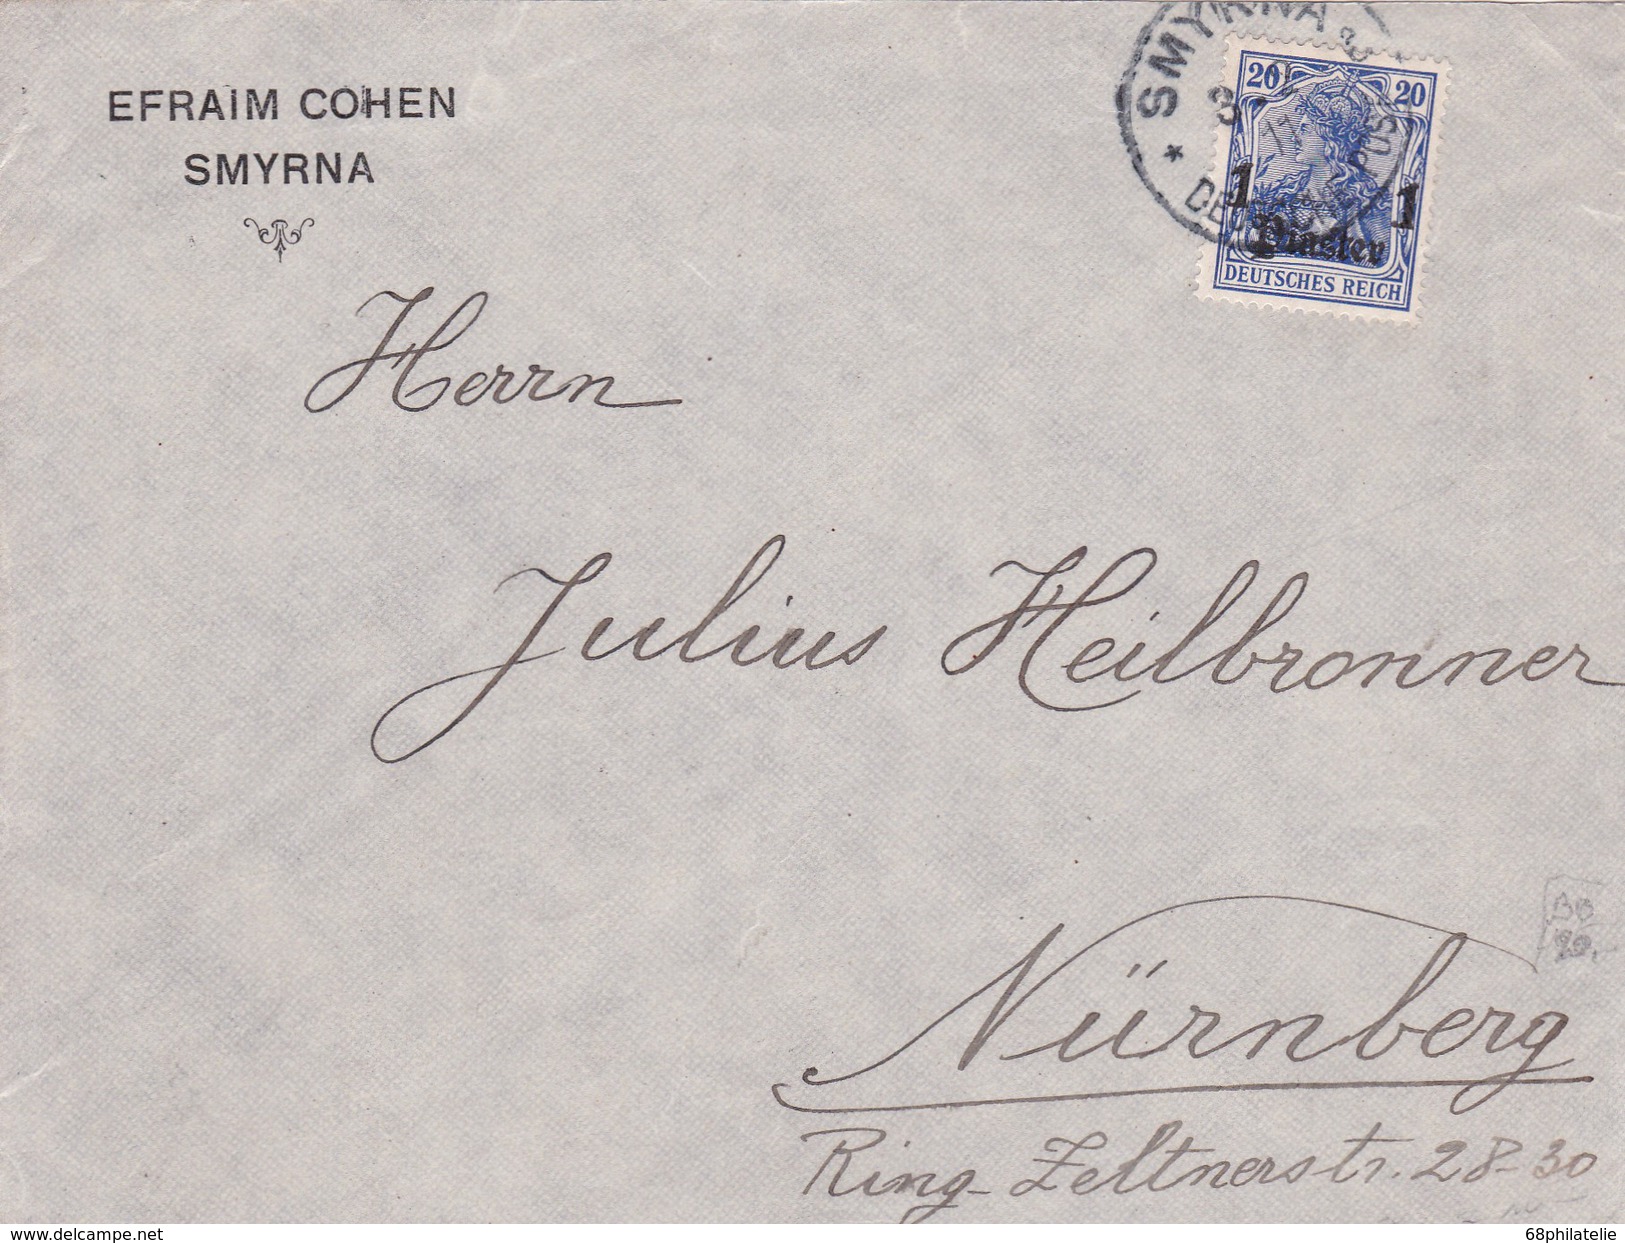 EFRAIM COHEN
SMYRNA
SMYRNA
20 20
1 1
Piaster
DEUTSCHES REICH
Herrn
Julius Heilbronner
Nürnberg
Ring-Zeltnerstr. 28-30
68philatelie